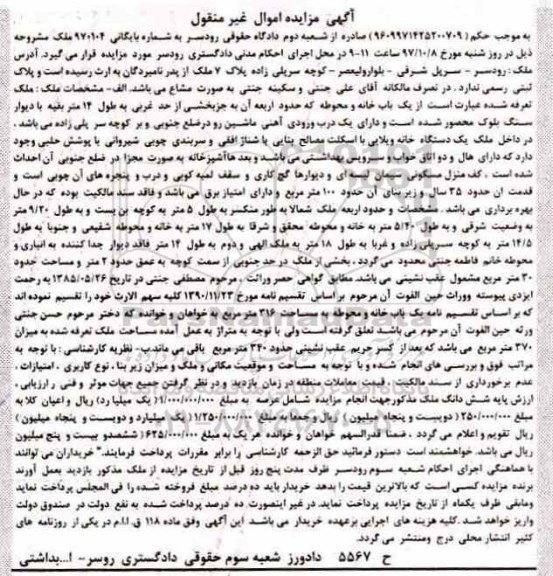 آگهی مزایده اموال غیر منقول
به موجب حکم (۹۶۰۹۹۷۱۴۲۵۲۰۰۷۰۹) صادره از شعبه دوم دادگاه حقوقی رودسر به شماره بایگانی ۹۷۰۱۰۴ ملک مشروحه
ذیل در روز شنبه مورخ ۹۷/۱۰/۸ ساعت ۱۱-۹ در محل اجرای احکام مدنی دادگستری رودسر مورد مزایده قرار می گیرد. آدرس
ملک : رودسر - سرپل شرقی - بلوارولیعصر - کوچه سرپلی زاده پلاک ۷ ملک از پدر نامبردگان به ارث رسیده است و پلاک
ثبتی رسمی ندارد . در تصرف مالکانه آقای علی جنتی و سکینه جنتی به صورت مشاع می باشد. الف- مشخصات ملک : ملک
تعرفه شده عبارت است از یک باب خانه و محوطه که حدود اربعه آن به جزبخشی از حد غربی به طول ۱۴ متر بقیه با دیوار
سنگ بلوک محصور شده است و دارای یک درب ورودی آهنی ماشین رو درضلع جنوبی و بر کوچه سر پلی زاده می باشد .
در داخل ملک یک دستگاه خانه ویلایی با اسکلت مصالح بنایی با شناژ افقی و سربندی چوبی شیروانی با پوشش حلبی وجود
دارد که دارای هال و دو اتاق خواب و سرویس بهداشتی می باشد و بعد ها آشپزخانه به صورت مجزا در ضلع جنوبی آن احداث
شده است . کف منزل مسکونی سیمان لیسه ای و دیوارها گچ کاری و سقف لمبه کوبی و درب و پنجره های آن چوبی است و
قدمت آن حدود ۳۵ سال و زیر بنای آن حدود ۱۰۰ متر مربع و دارای امتیاز برق می باشد و فاقد سند مالکیت بوده که در حال
بهره برداری می باشد . مشخصات و حدود اربعه ملک شمالا به طور منکسر به طول ۵ متر به کوچه بن بست و به طول ۹/۲۰ متر
به وضعیت شرقی و به طول ۵/۴۰ متر به خانه و محوطه محقق و شرقا به طول ۱۷ متر به خانه و محوطه شفیعی و جنوبا به طول
۱۴/۵ متر به کوچه سرپلی زاده و غربا به طول ۱۸ متر به ملک الهی و دوم به طول ۱۴ متر فاقد دیوار جدا کننده به انباری و
محوطه خانم فاطمه جنتی محدود می گردد . بخشی از ملک در حد جنوبی از سمت کوچه به عمق حدود ۲ متر و مساحت حدود
۳۰ متر مربع مشمول عقب نشینی می باشد. مطابق گواهی حصر وراثت ، مرحوم مصطفی جنتی در تاریخ ۱۳۸۵/۰۵/۲۶ به رحمت
ایزدی پیوسته و وراث حین الفوت آن مرحوم بر اساس تقسیم نامه مورخ ۱۳۹۰/۱۱/۲۳ کلیه سهم الارث خود را تقسیم نموده اند
که بر اساس تقسیم نامه یک باب خانه و محوطه به مساحت ۳۱۶ متر مربع به خواهان و خوانده که دختر مرحوم حسن جنتی
ورثه حین الفوت آن مرحوم می باشد تعلق گرفته است. ولی با توجه به متراژ به عمل آمده مساحت ملک تعرفه شده به میزان
۳۷۰ متر مربع می باشد که بعد از کسر حریم عقب نشینی حدود ۳۴۰ متر مربع باقی می ماند.ب- نظریه کارشناسی : با توجه به
مراتب فوق و بررسی های انجام شده و با توجه به مساحت و موقعیت مکانی و ملک و میزان زیر بنا ، نوع کاربری ، امتیازات ،
عدم برخورداری از سند مالکیت و قیمت معاملات منطقه در زمان بازدید و در نظر گرفتن جمیع جهات موثر و فنی و ارزیابی ،
ارزش پایه شش دانگ ملک مذکورجهت انجام مزایده شامل عرصه به مبلغ ۱/۰۰۰/۰۰۰/۰۰۰ (یک میلیارد) ریال و اعیان کلا به
مبلغ ۲۵۰/۰۰۰/۰۰۰ (دویست و پنجاه میلیون ) ریال و جمعا به مبلغ ۱/۲۵۰/۰۰۰/۰۰۰ (یک میلیارد و دویست و پنجاه میلیون)
ریال تقویم و اعلام می گردد . ضمنا قدرالسهم خواهان و خوانده هر یک به مبلغ ۶۲۵/۰۰۰/۰۰۰ (ششصدو بیست و پنج میلیون
ریال می باشد. خواهشمند است دستور فرمائید حق الزحمه کارشناسی را برابر مقررات پرداخت فرمایند." خریداران می توانند
با هماهنگی اجرای احکام شعبه سوم رودسر ظرف مدت پنج روز قبل از تاریخ مزایده از ملک مذکور بازدید بعمل آورند
برنده مزایده کسی است که بالاترین قیمت را بدهد خریدار باید ده درصد مبلغ فروخته شده را فی المجلس پرداخت نماید
ومابقی ظرف یکماه از تاریخ مزایده پرداخت نماید. در غیر اینصورت ده درصد پرداخت شده به نفع دولت در صندوق دولت
واریز خواهد شد .کلیه هزینه های اجرایی برعهده خریدار می باشد این آگهی وفق ماده ۱۱۸ ق.ا.ا.م در یکی از روزنامه های
کثیر انتشار محلی درج ومنتشر می گردد.
ح ۵۵۶۷ دادورز شعبه سوم حقوقی دادگستری روسر- ا...بداشتی